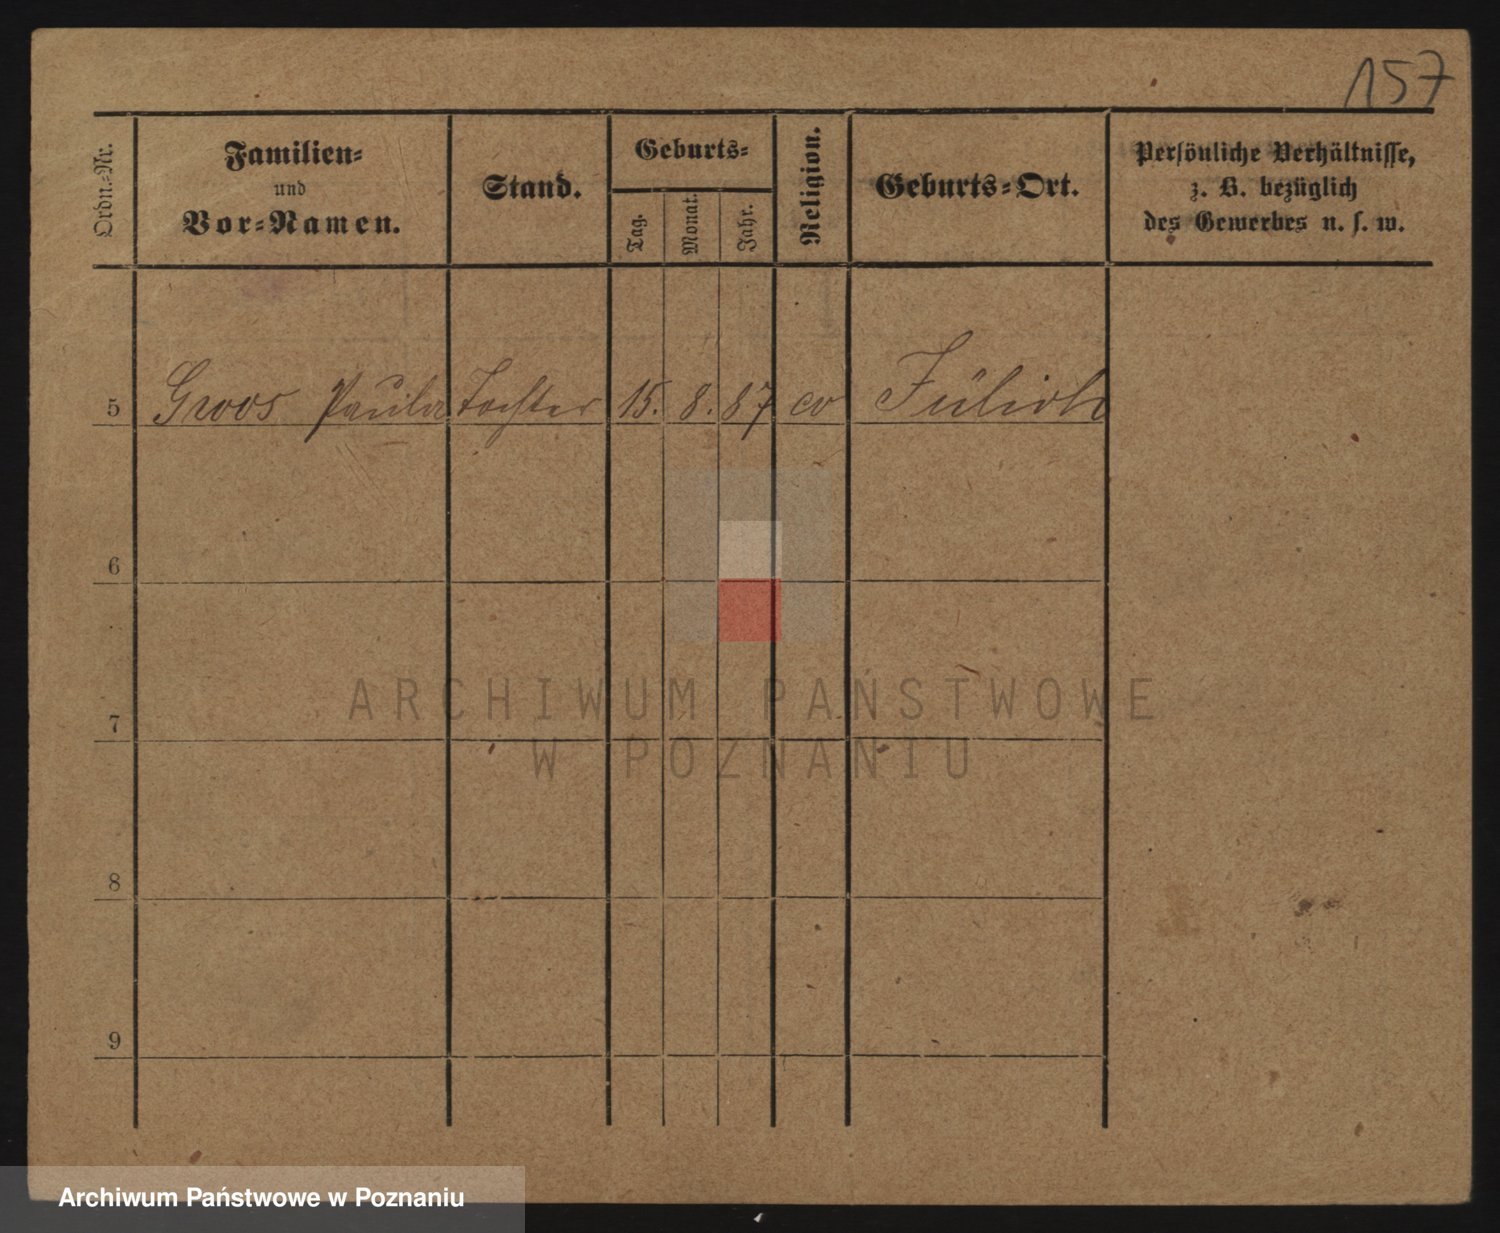 157
Ordn.-Nr.
Familien-
und
Vor-Namen.
Stand.
Geburts-
Tag.
Monat.
Jahr.
Religion.
Geburts-Ort.
Persönliche Verhältnisse,
z. B. bezüglich
des Gewerbes u. s. w.
5 Groos Paula Tochter 15. 8. 87 ev Jülich
6
7
8
9
ARCHIWUM PAŃSTWOWE
W POZNANIU
Archiwum Państwowe w Poznaniu